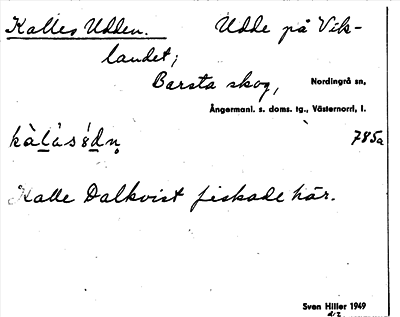 Kalles Udden. Udde på Vik-
landet;
Barsta skog, Nordingrå sn,
Ångermanl. s. doms. tg., Västernorrl. l.
785a
Kalle Dalkvist fiskade här.
Sven Hiller 1949